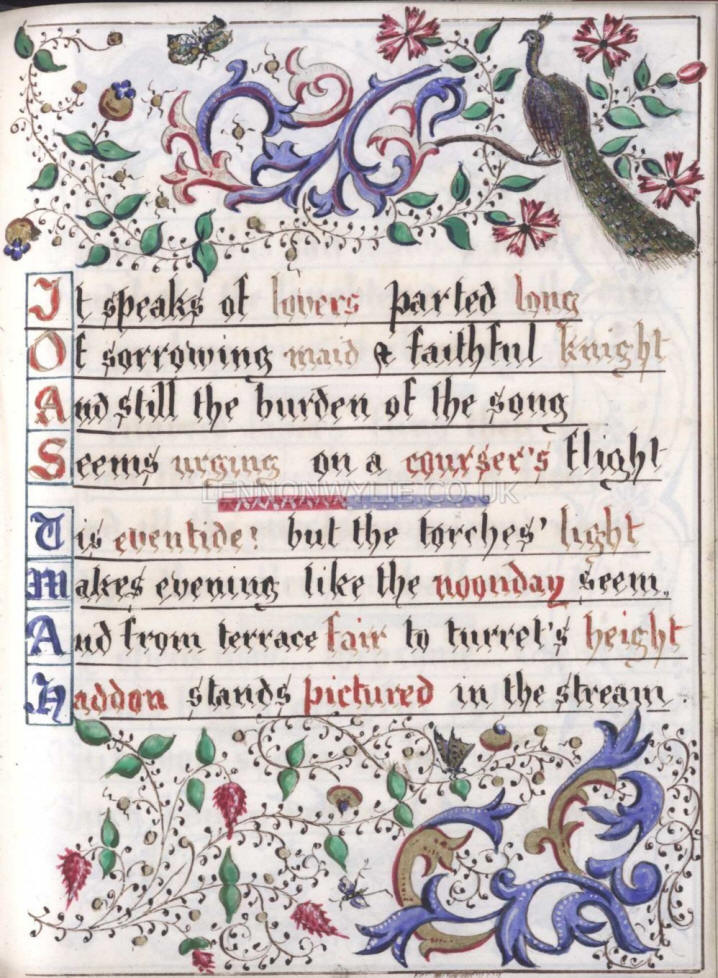 It speaks of lovers parted long
Of sorrowing maid & faithful knight
And still the burden of the song
Seems urging on a courser's flight
LENNONWYLIE.CO.UK
Tis eventide! but the torches' light
Makes evening like the noonday seem,
And from terrace fair to turret's height
Haddon stands pictured in the stream.